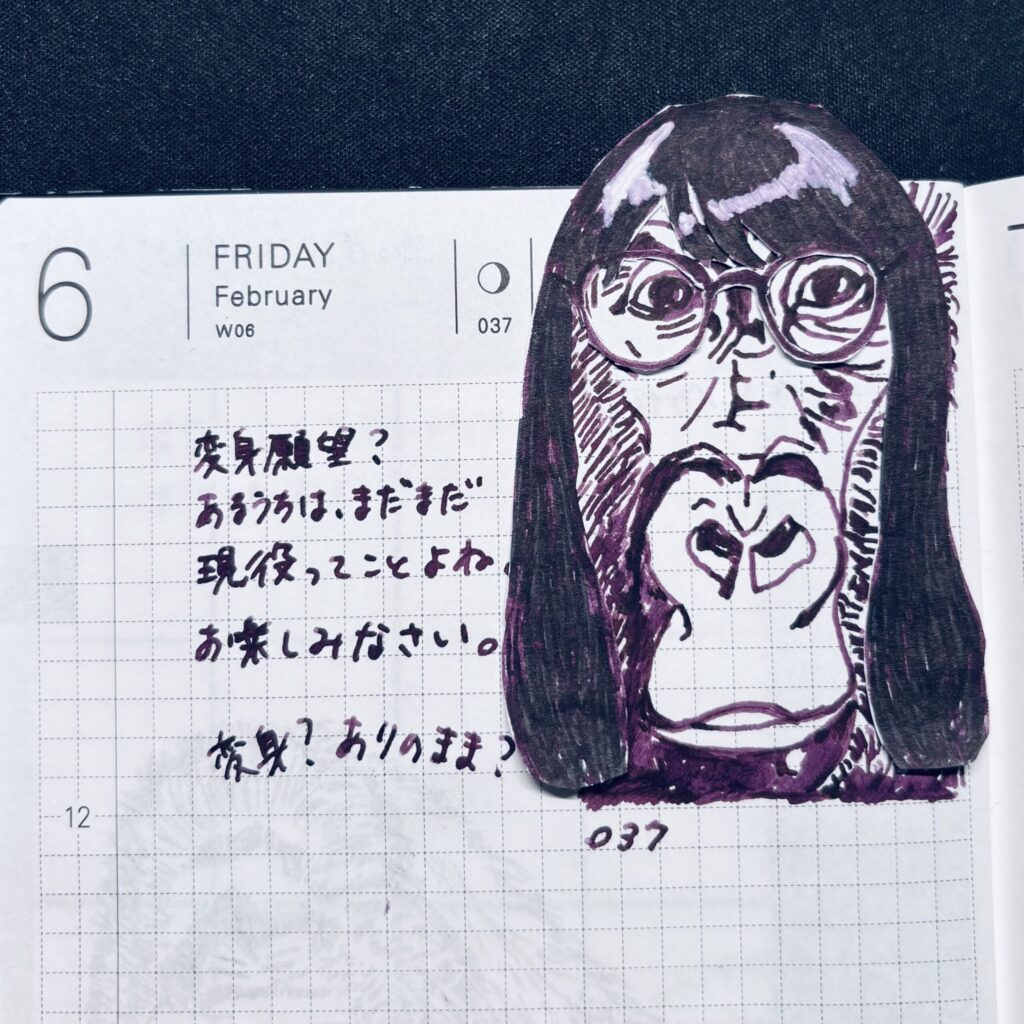 6
FRIDAY
February
W06
037
変身願望?
あるうちは、まだまだ
現役ってことよね、
お楽しみなさい。
変身?ありのまま?
12
037